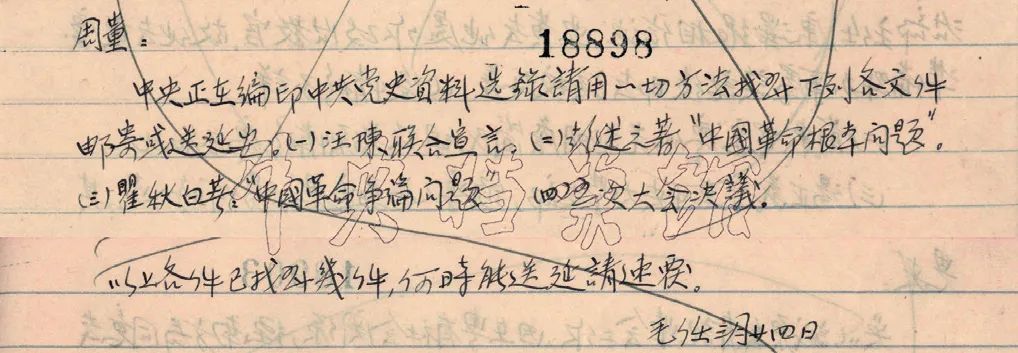 周董：
18898
中央正在编印中共党史資料选录請用一切方法找到下列各文件
邮寄或送延安。(一)汪陳联合宣言。(二)彭述之著“中國革命根本问题”。
(三)瞿秋白著：“中國革命爭論问题” (四)五次大会决議。
中央档案馆
以上各件已找到幾件，何時能送延請速复。
毛任 三月廿四日